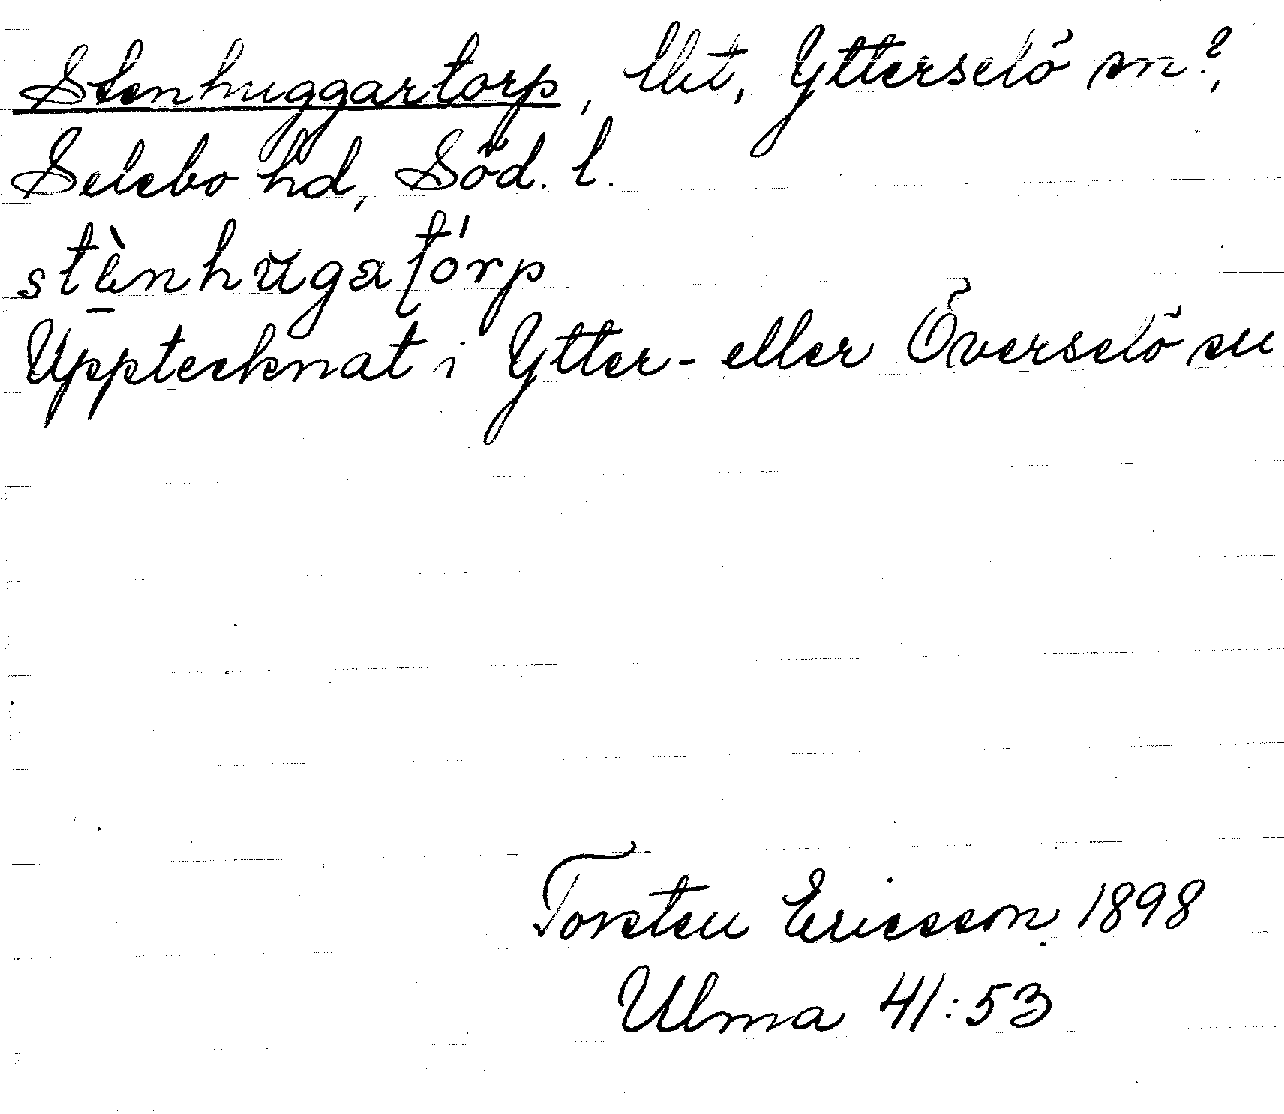 Stenhuggartorp, lht, Ytterselö sn?,
Selebo hd, Söd. l.
stè̱nhŭgatórp
Upptecknat i Ytter- eller Överselö sn
Torsten Ericsson 1898
Ulma 41:53